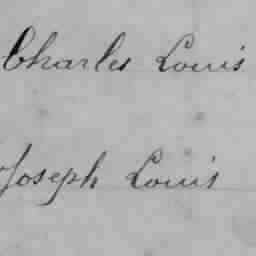 Charles Louis
Joseph Louis